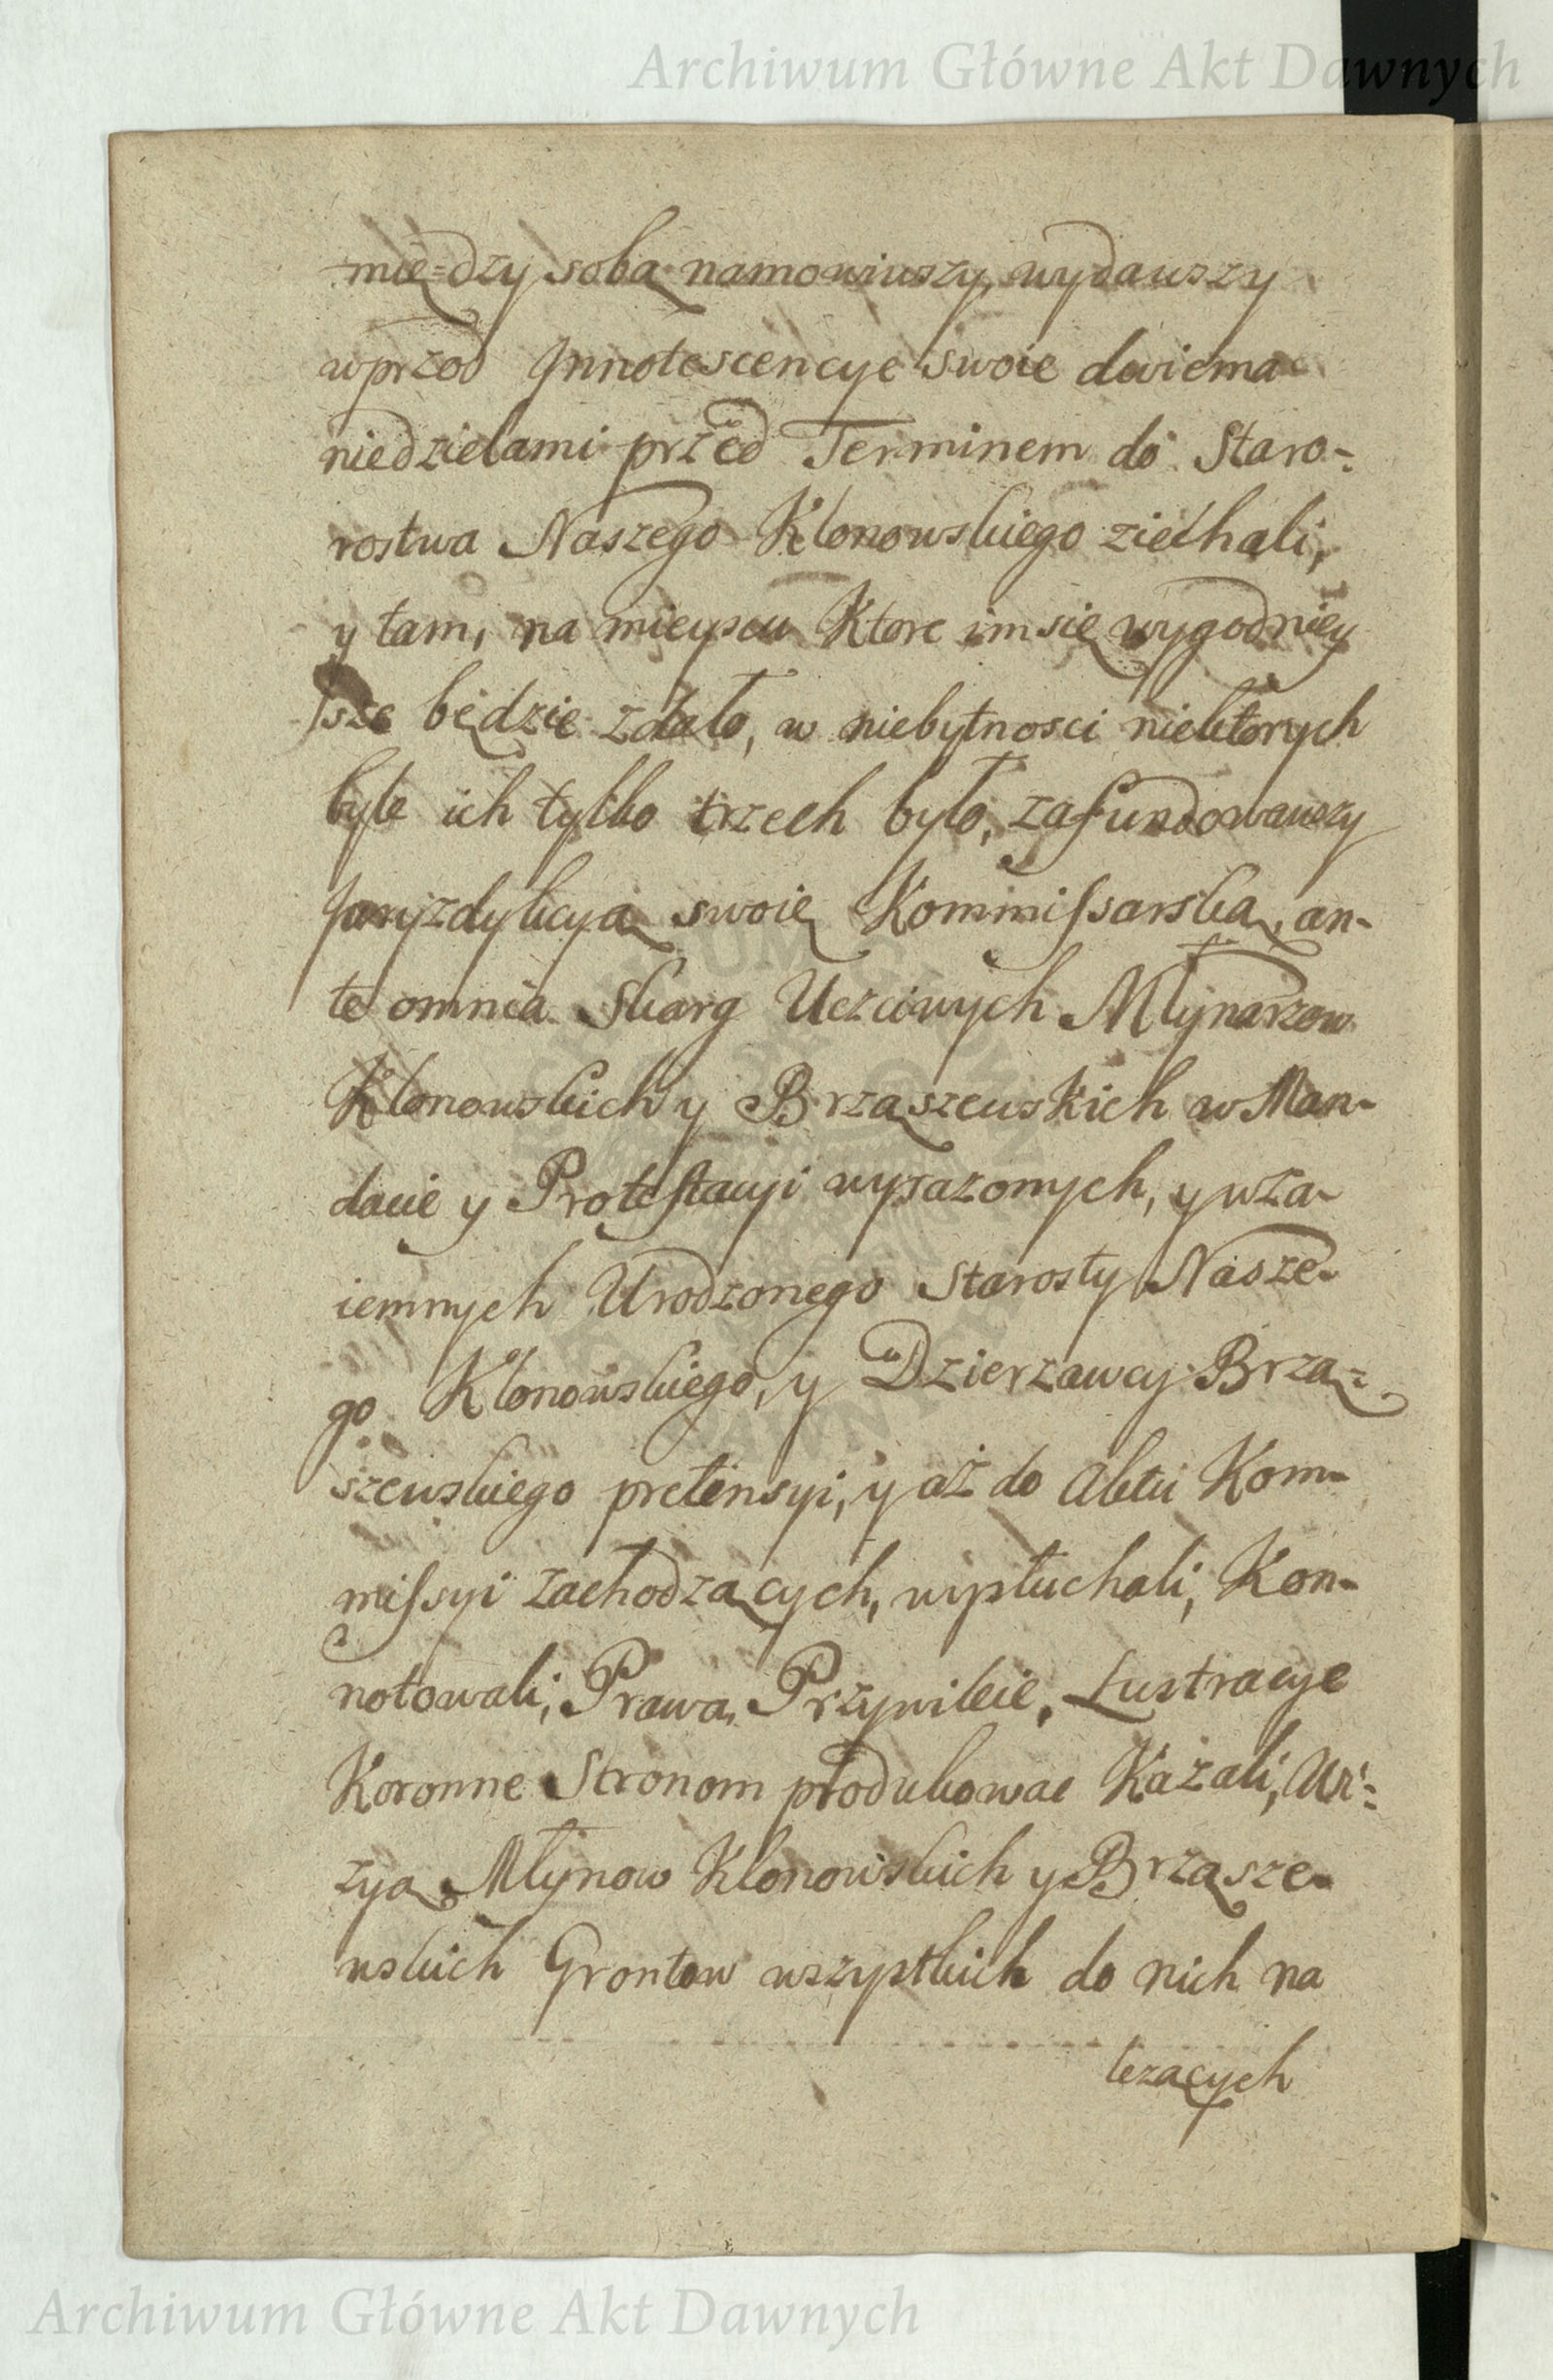 Archiwum Główne Akt Dawnych
mię=dzy sobą namowiwszy, wydawszy
wprzod Jnnotescencye swoie dwiema
niedzielami przed Terminem do Staro-
rostwa Naszego Klonowskiego ziechali,
y tam, na mieyscu Ktore im się wygodniey
sze będzie zdało, w niebytnosci niektorych
byle ich tylko trzech było, zafundowawszy
Juryzdykcyą swoię Kommissarską, an-
te omnia Skarg Uczciwych Młynarzow
Klonowskich y Brząszewskich w Man-
dacie y Protestacyi wyrazonych, y wza-
iemnych Urodzonego Starosty Nasze-
go Klonowskiego, y Dzierzawcy Brzą-
szewskiego pretensyi, y aż do Aktu Kom-
missyi zachodzących, wysłuchali, Kon-
notowali, Prawa, Przywileie, Lustracye
Koronne Stronom produkowac Kazali, Wi-
zyą Młynow Klonowskich y Brząsze-
wskich Grontow wszystkich do nich na
lezących
Archiwum Główne Akt Dawnych